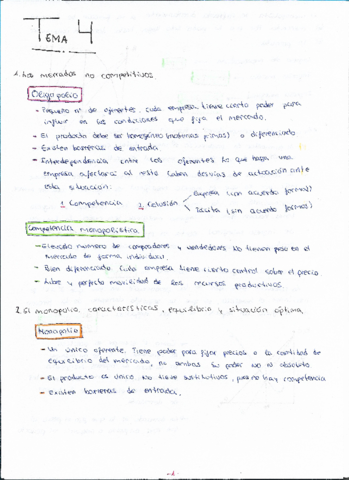 TEMA 4
1. Los mercados no competitivos.
Oligopolio
- Pequeño nº de oferentes, cada empresa tiene cierto poder para
influir en las condiciones que fija el mercado.
- El producto debe ser homogéneo (materias primas) o diferenciado
- Existen barreras de entrada
- Interdependencia entre los oferentes lo que haga una
empresa afectará al resto caben de actuación ante
esta situación.
1. Competencia 2. Colusión Expresa (con acuerdo formal)
Tácita (sin acuerdo formal)
Competencia monopolística
- Elevado número de compradores y vendedores. No tienen peso en el
mercado de forma individual.
- Bien diferenciado. Cada empresa tiene cierto control sobre el precio
- Libre y perfecta movilidad de los recursos productivos.
2. El monopolio, características, equilibrio y situación óptima.
Monopolio
- Un único oferente. Tiene poder para fijar precios o la cantidad de
equilibrio del mercado, no ambas. Su poder no es absoluto
- El producto es único. No tiene sustitutivos, pues no hay competencia
- Existen barreras de entrada.
- 1 -